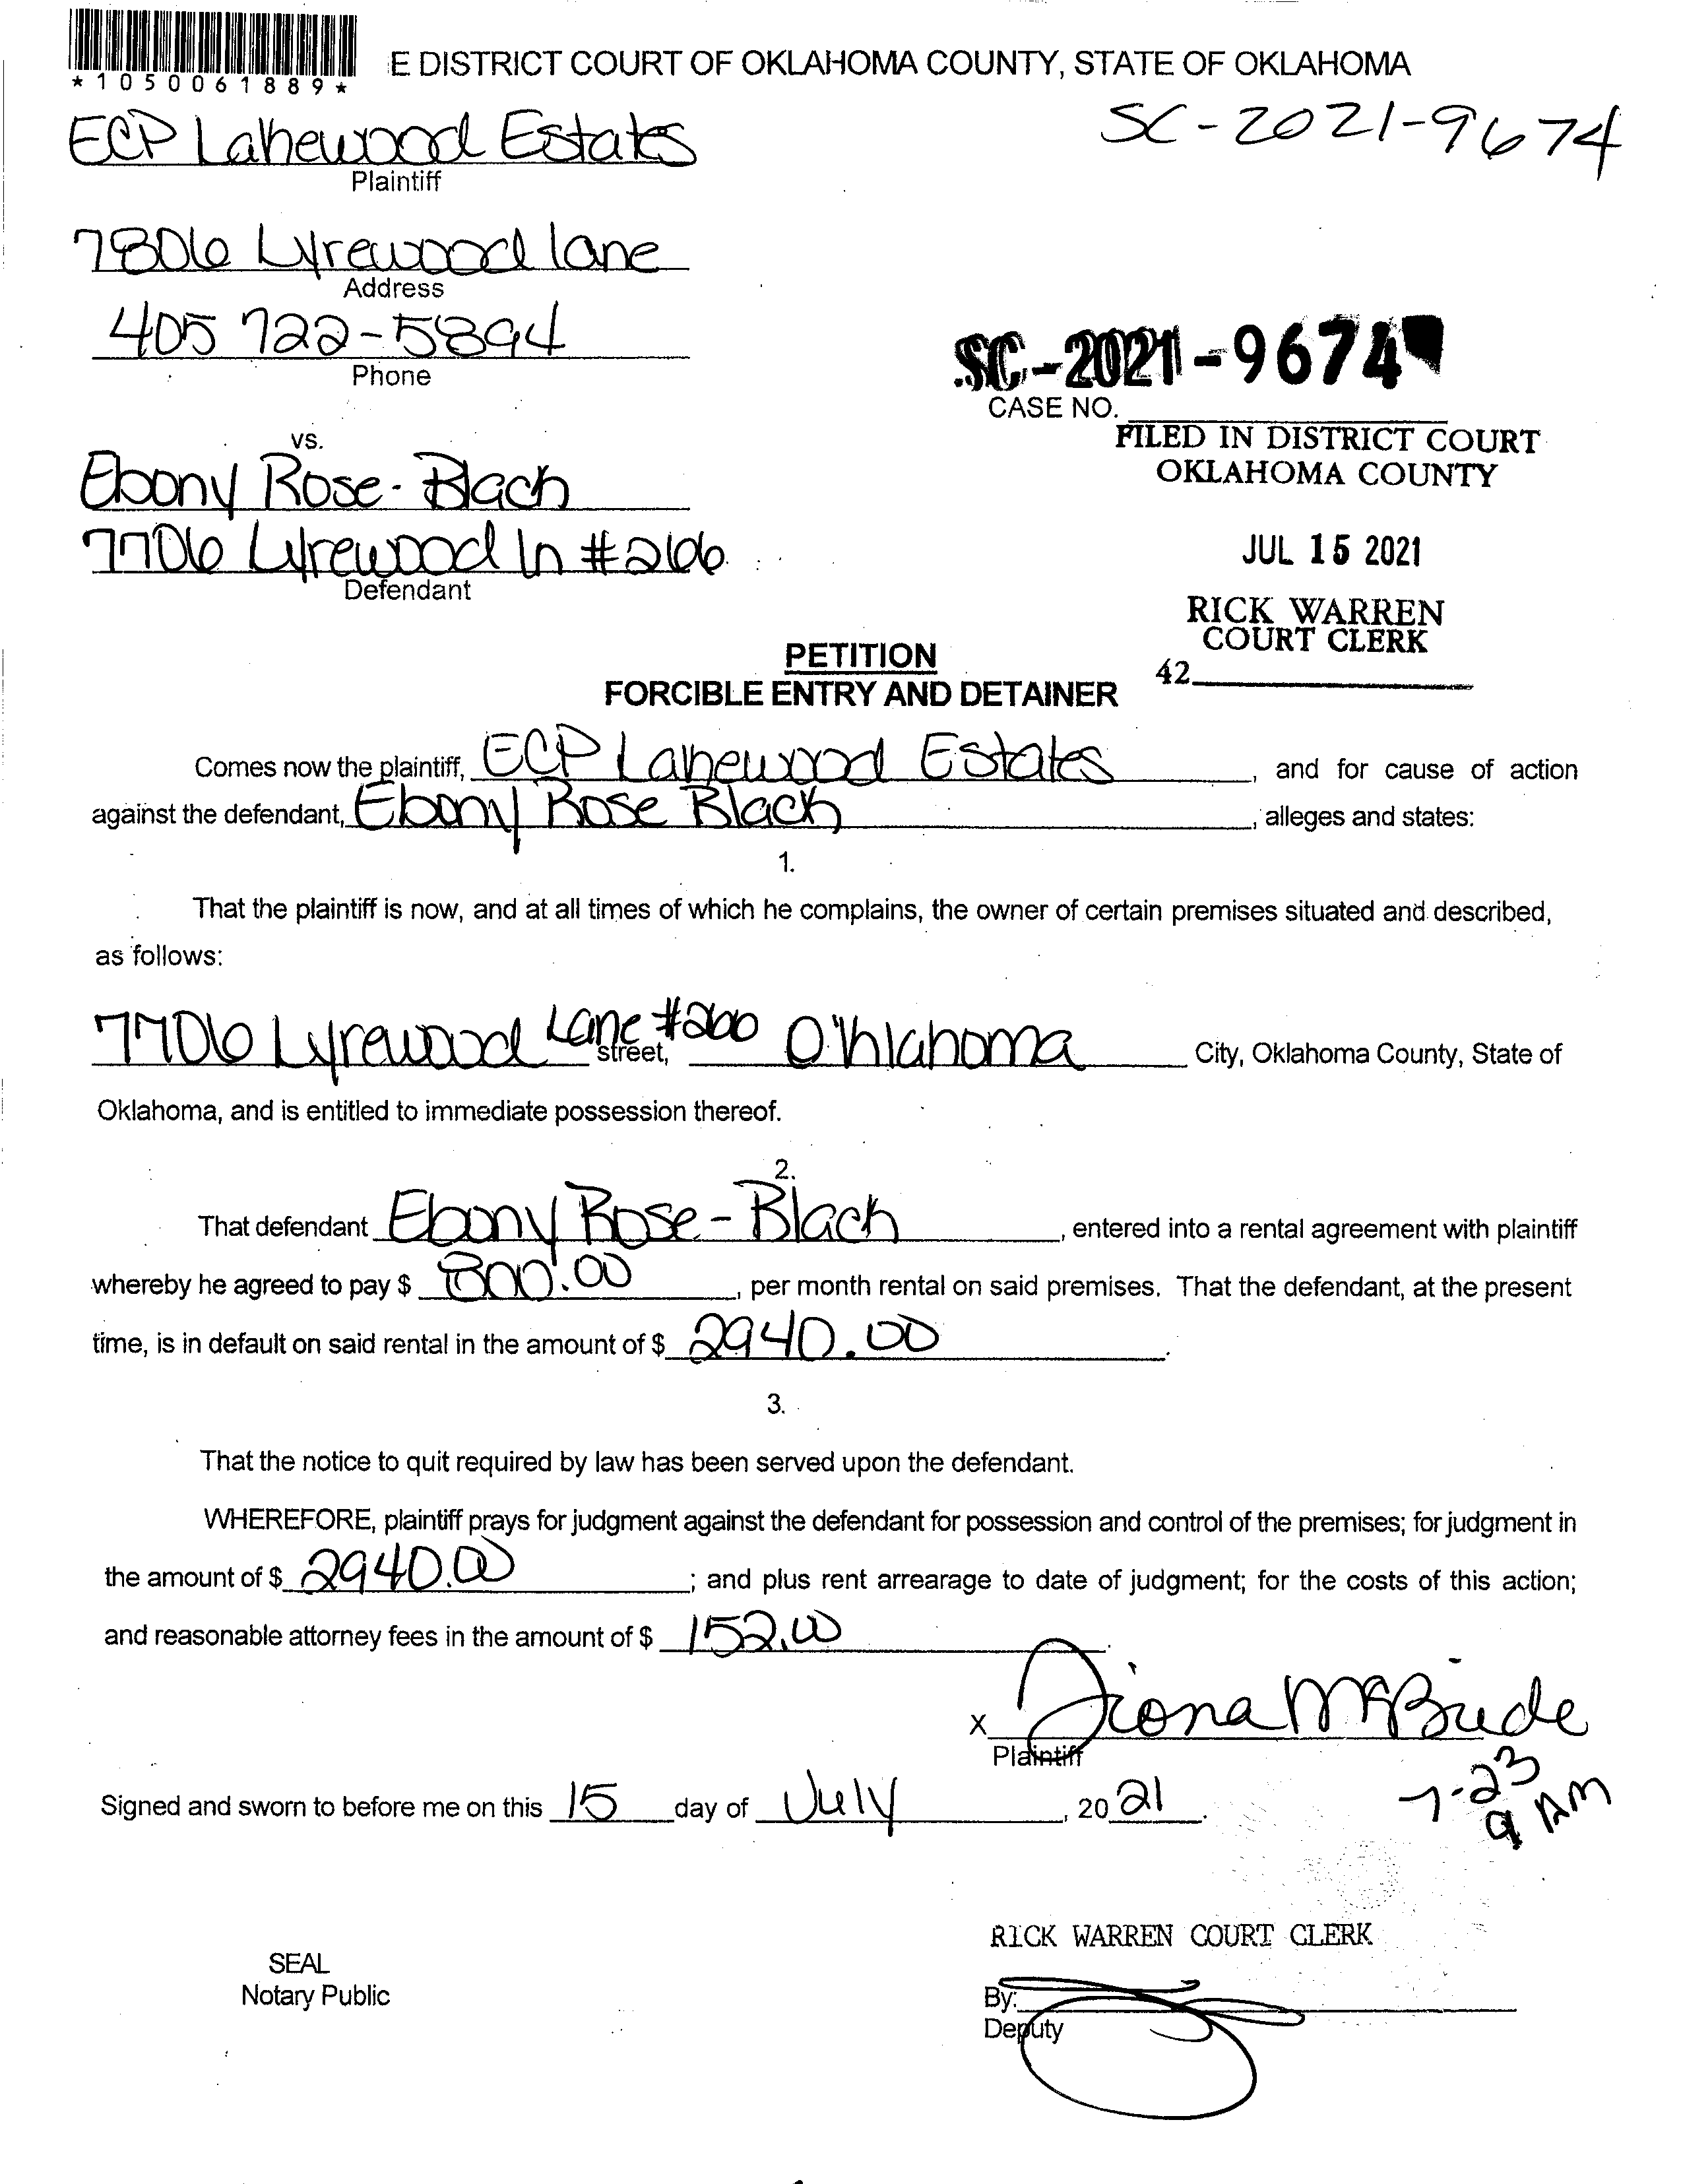 *1050061889*
E DISTRICT COURT OF OKLAHOMA COUNTY, STATE OF OKLAHOMA
ECP Lakewood Estates
SC-2021-9674
Plaintiff
7806 Lyrewood lane
Address
405 722-5894
Phone
SC-2021-9674
CASE NO.
FILED IN DISTRICT COURT
OKLAHOMA COUNTY
vs.
Ebony Rose-Black
7706 Lyrewood ln #266
Defendant
JUL 15 2021
RICK WARREN
COURT CLERK
42
PETITION
FORCIBLE ENTRY AND DETAINER
Comes now the plaintiff, ECP Lakewood Estates, and for cause of action
against the defendant, Ebony Rose Black, alleges and states:
1.
That the plaintiff is now, and at all times of which he complains, the owner of certain premises situated and described,
as follows:
7706 Lyrewood Lane #266 street, Oklahoma City, Oklahoma County, State of
Oklahoma, and is entitled to immediate possession thereof.
2.
That defendant Ebony Rose-Black, entered into a rental agreement with plaintiff
whereby he agreed to pay $ 800.00, per month rental on said premises. That the defendant, at the present
time, is in default on said rental in the amount of $ 2940.00.
3.
That the notice to quit required by law has been served upon the defendant.
WHEREFORE, plaintiff prays for judgment against the defendant for possession and control of the premises; for judgment in
the amount of $ 2940.00; and plus rent arrearage to date of judgment; for the costs of this action;
and reasonable attorney fees in the amount of $ 152.00.
X Fiona McBride
Plaintiff
7-23
9 AM
Signed and sworn to before me on this 15 day of July, 20 21.
RICK WARREN COURT CLERK
SEAL
Notary Public
By:
Deputy